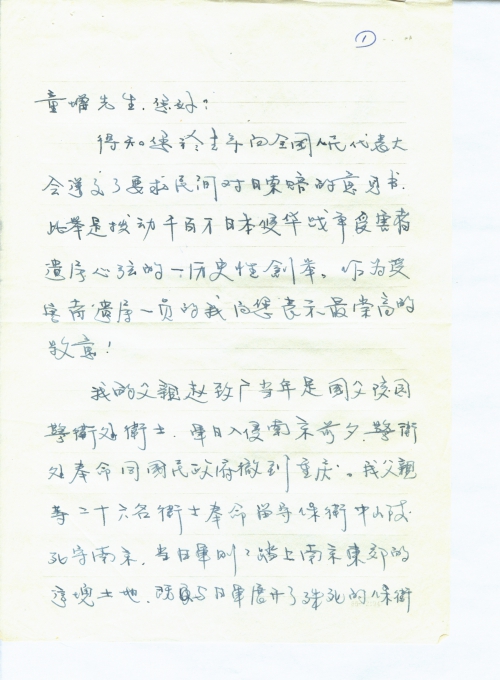 1
童增先生, 您好?
得知您於去年向全國人民代表大
会遞交了要求民间对日索賠的意見书.
此举是拨动千百万日本侵华战争受害者
遺序心弦的一历史性創举。作为受
害者遺序一员的我向您表示最崇高的
敬意!
我的父親赵致广当年是國父陵园
警衛处衛士. 軍日入侵南京前夕, 警衛
处奉命同國民政府撤到重庆。我父親
等二十六名衛士奉命留守保衛中山陵.
死守南京. 当日軍刚刚踏上南京東郊的
這塊土地, 与日軍展开了殊死的保衛